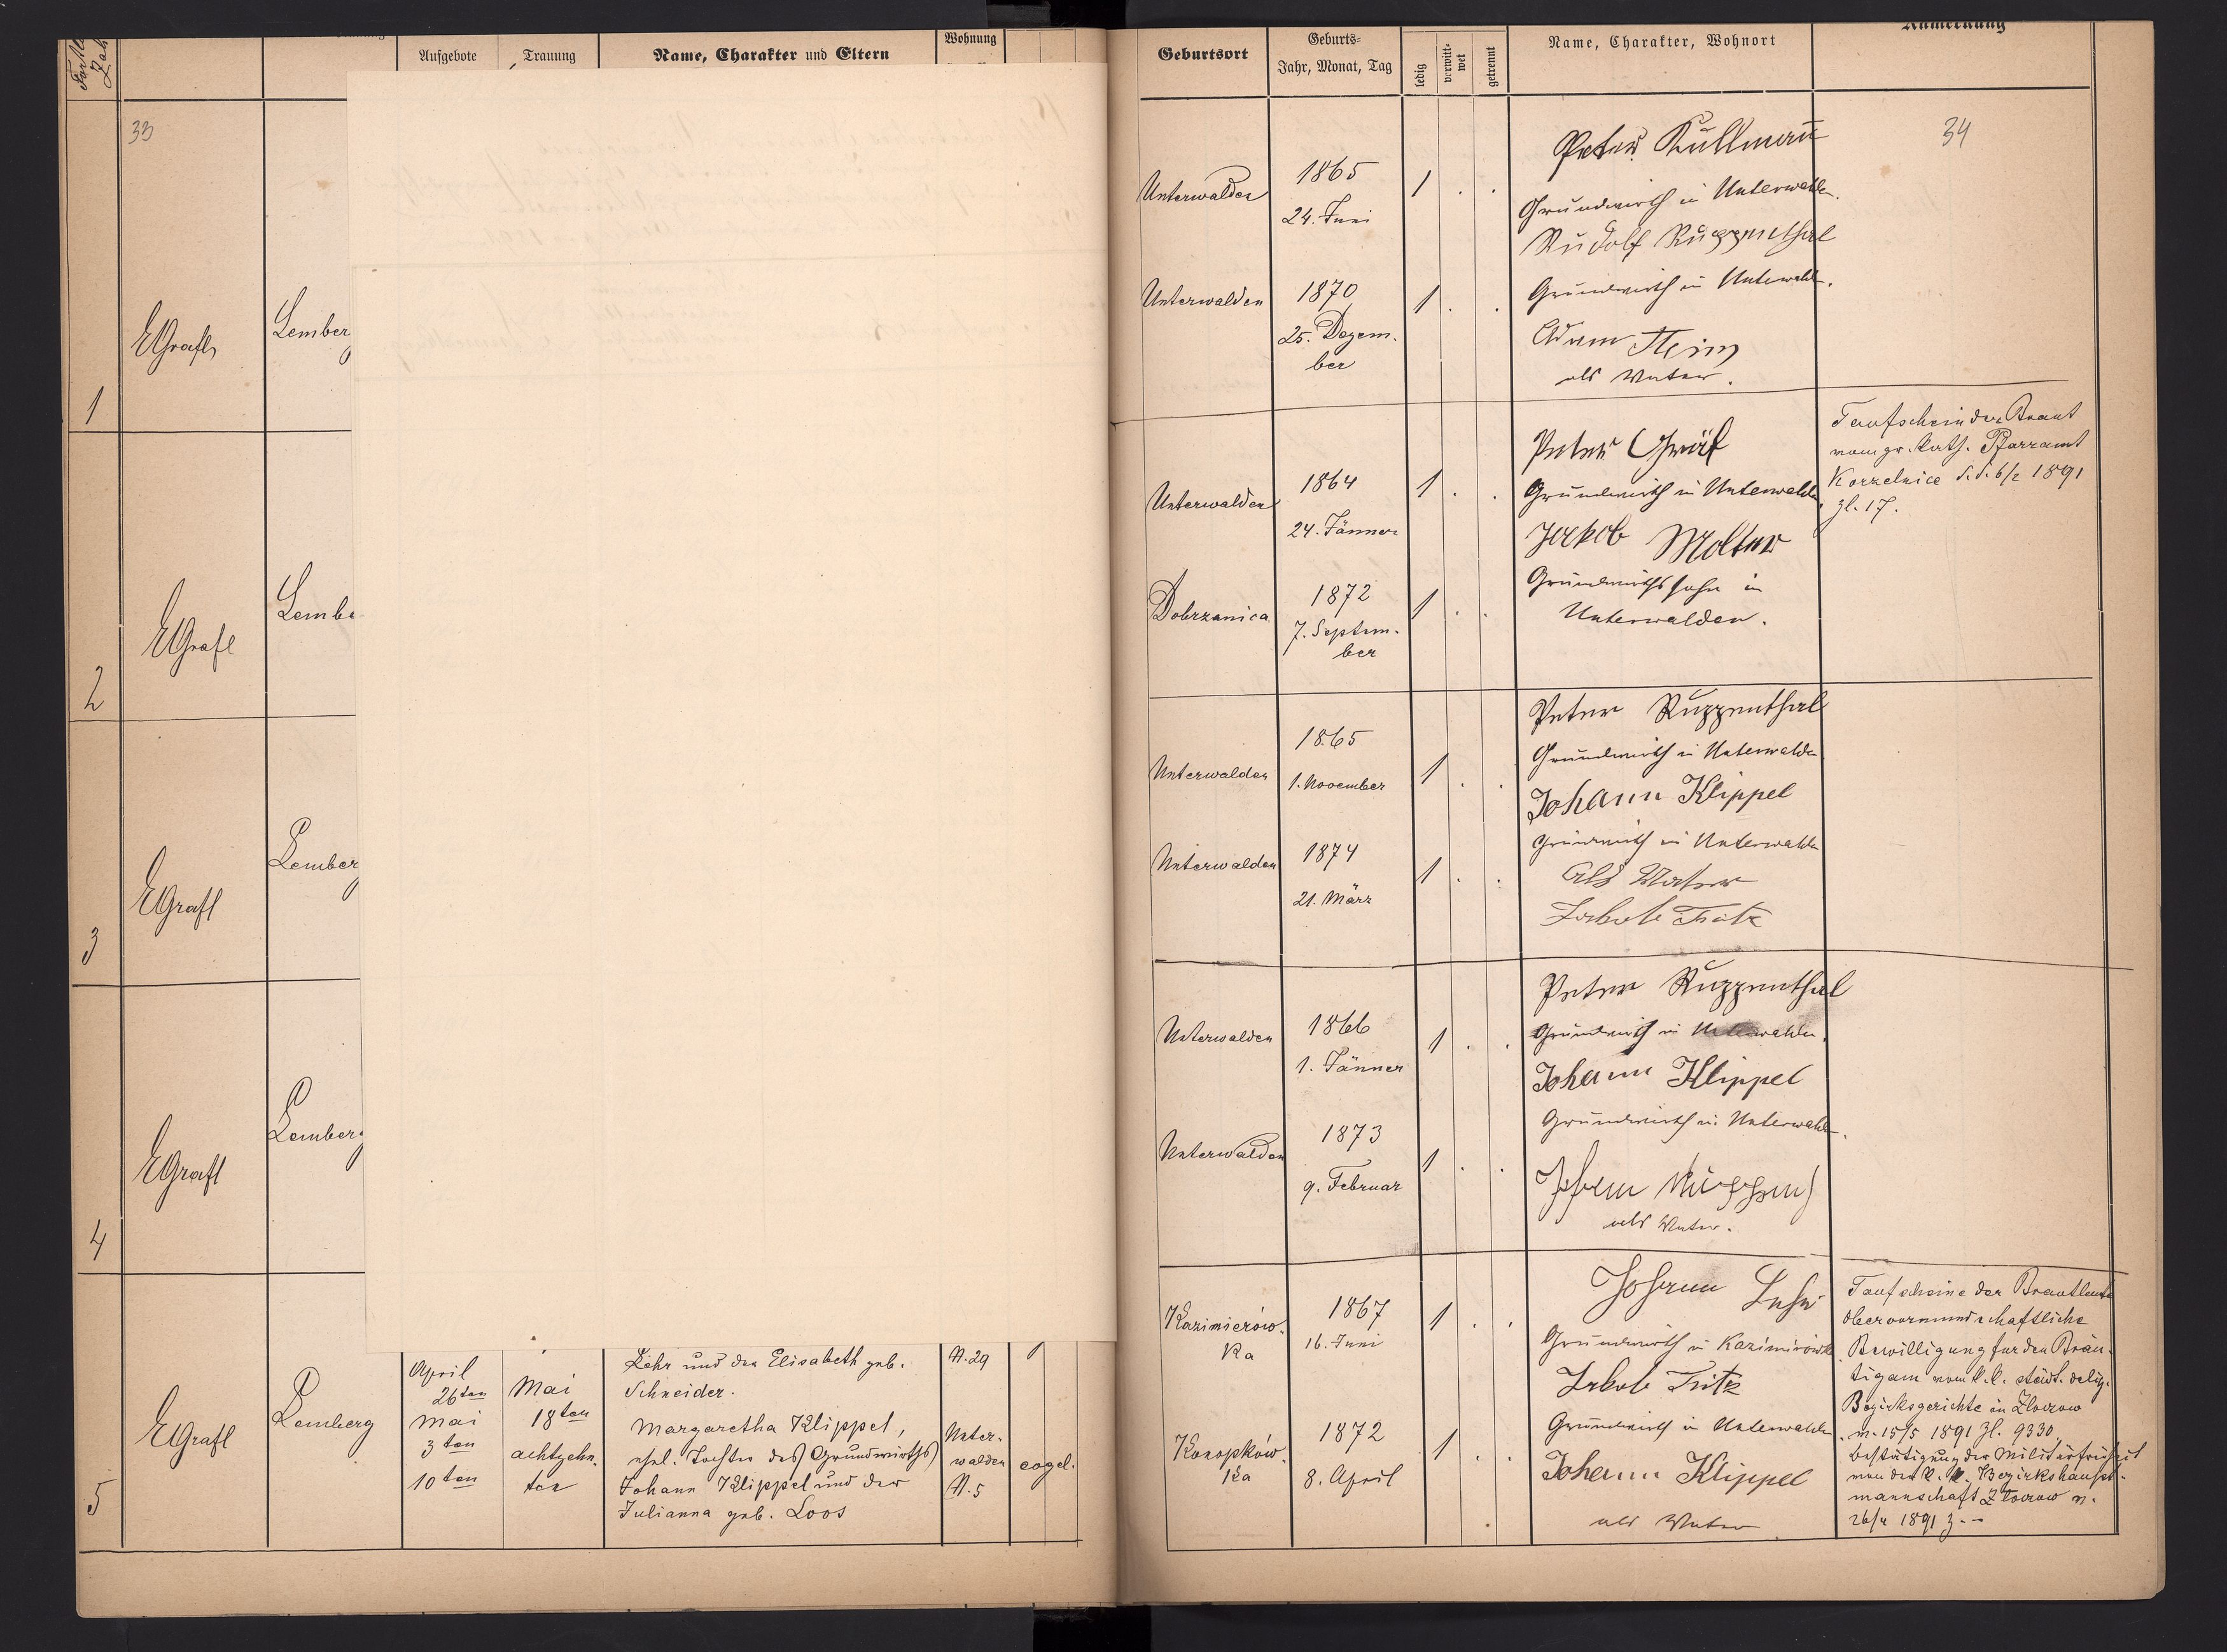 Aufgebote
Trauung
Name, Charakter und Eltern
Wohnung
33
1
EGrafl
Lember
2
EGrafl
Lembe
3
EGrafl
Lember
4
EGrafl
Lemberg
5
EGrafl
Lemberg
April
26ten
Mai
3ten
10ten
Mai
18ten
achtzehn-
ter
Lehr und der Elisabeth geb.
Schneider.
Margaretha Klippel,
ehel. Tochter des Grundwirths
Johann Klippel und der
Julianna geb. Loos
N. 29
Unter-
walden
N. 5
evgel.
Geburtsort
Geburts-
Jahr, Monat, Tag
ledig
verwitt-
wet
getrennt
Name, Charakter, Wohnort
Anmerkung
34
Unterwalden
1865
24. Juni
1
Peter Kullmann
Grundwirth in Unterwalden.
Rudolf Ruppenthal
Unterwalden
1870
25. Dezem-
ber
1
Grundwirth in Unterwalden.
Adam Heim
als Vater.
Unterwalden
1864
24. Jänner
1
Peter Gräf
Grundwirth in Unterwalden
Jakob Molter
Dobrzanica
1872
7. Septem-
ber
1
Grundwirthssohn in
Unterwalden.
Taufschein der Braut
vom gr. kath. Pfarramt
Korzelnice d. d. 6/2 1891
Zl. 17.
Unterwalden
1865
1. November
1
Peter Ruppenthal
Grundwirth in Unterwalden
Johann Klippel
Unterwalden
1874
21. März
1
Grundwirth in Unterwalden
Als Vater
Jakob Fritz
Unterwalden
1866
1. Jänner
1
Peter Ruppenthal
Grundwirth in Unterwalden.
Johann Klippel
Unterwalden
1873
9. Februar
1
Grundwirth in Unterwalden.
als Vater.
Kazimierów-
ka
1867
16. Juni
1
Johann Lehr
Grundwirth in Kazimirówk
Jakob Fritz
Konopków-
ka
1872
8. April
1
Grundwirth in Unterwalden
Johann Klippel
als Vater
Taufscheine der Brautleute
Obervormundschaftliche
Bewilligung für den Bräu-
tigam vom k. k. städt. deleg.
Bezirksgerichte in Złoczow
v. 15/5 1891 Zl. 9330.
Bestätigung der Militärfreiheit
von der k. k. Bezirkshaupt-
mannschaft Złoczow v.
26/4 1891 Z. --